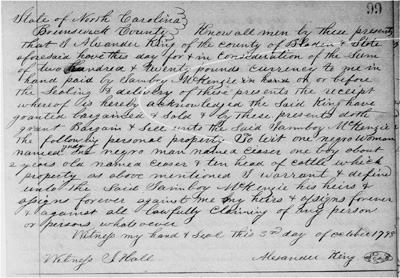 99
State of North Carolina
Brunswick County Know all men by these presents
that I Alexander King of the county of Bladen & State
aforesaid have this day for & in Consideration of the Sum
of two hundred & twenty pounds currency to me in
hand paid by Samboy McKenzie in hand on or before
the Sealing & delivery of these presents the receipt
whereof is hereby acknowledged the Said King have
granted bargained & Sold & by these presents doth
grant Bargain & Sell unto the Said Samboy McKenzie
the following personal property To Wit one negro Woman
named one negro man named Ceaser one boy about
2 years old named Ceaser & ten head of cattle which
property as above mentioned I warrant & define
unto the Said Samboy McKenzie his heirs &
assigns forever against me my heirs & assigns forever
& against all lawfully Claiming of any person
or persons whatsoever
Witness my hand & Seal this 3rd day of October
Witness S Hall Alexander King Seal